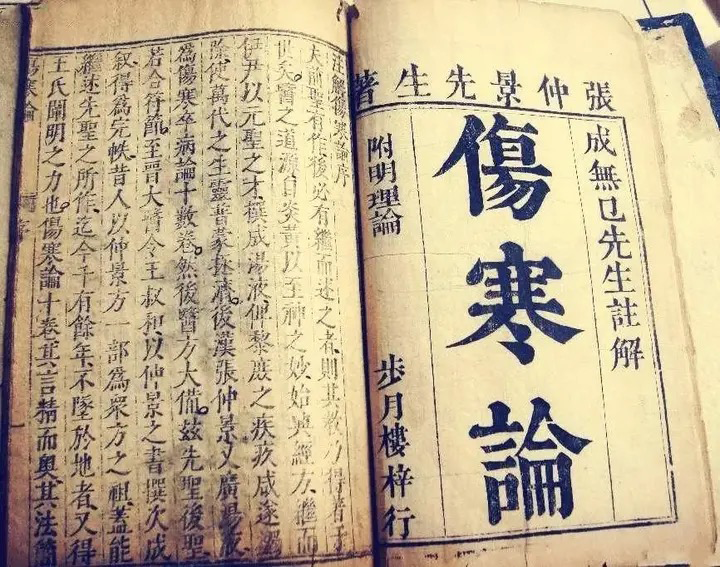 張仲景先生著
成無已先生註解
傷寒論
附明理論
步月樓梓行
注解傷寒論序
夫前聖有作後必有繼而述之者則其教乃得著于
世矣。醫之道源自炎黃以至神之妙始興經方繼而
伊尹以元聖之才撰成湯液俾黎庶之疾疚咸遂蠲
除使萬代之生靈普蒙拯濟。後漢張仲景又廣湯液
為傷寒卒病論十數卷。然後醫方大備。茲先聖後聖
若合符節。至晉大醫令王叔和以仲景之書撰次成
敘得為完帙昔人以仲景方一部為眾方之祖蓋能
繼述先聖之所作。迄今千有餘年。不墜於地者又得
王氏闡明之力也。傷寒論十卷其言精而奧其法簡
傷寒論 序